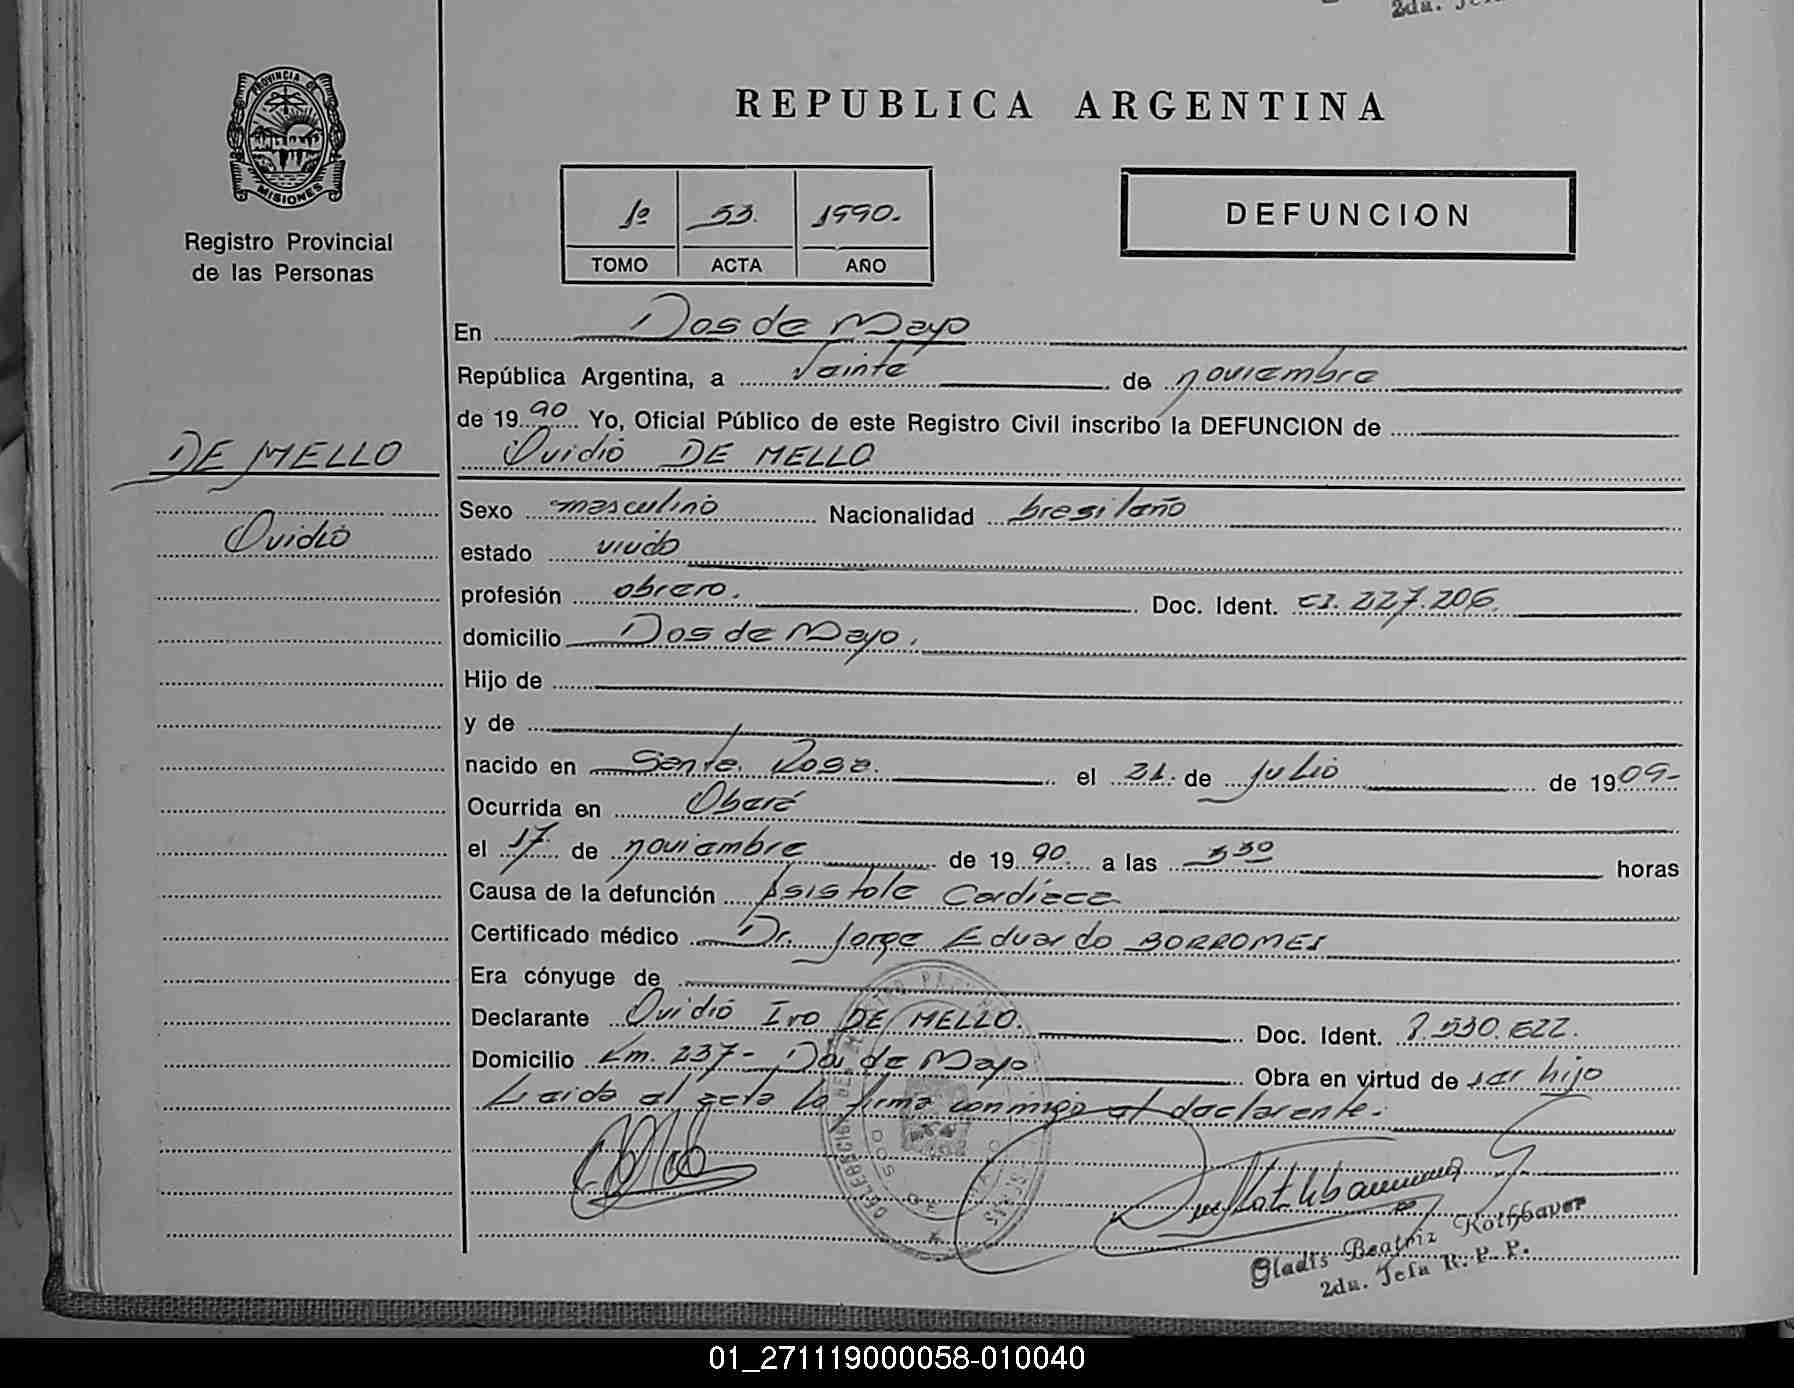 2da. Jefa
PROVINCIA DE
MISIONES
Registro Provincial
de las Personas
REPUBLICA ARGENTINA
1º 53. 1990.
TOMO ACTA AÑO
DEFUNCION
En Dos de Mayo
República Argentina, a Veinte de noviembre
de 19 90 Yo, Oficial Público de este Registro Civil inscribo la DEFUNCION de
DE MELLO
Ovidio DE MELLO
Ovidio
Sexo masculino Nacionalidad brasilaño
estado viudo
profesión obrero. Doc. Ident. CI. 227.206.
domicilio Dos de Mayo.
Hijo de
y de
nacido en Santa Rosa. el 21. de julio de 19 09-
Ocurrida en Oberá
el 17. de noviembre de 19 90. a las 3 30 horas
Causa de la defunción Asistole Cardíaca
Certificado médico Dr. Jorge Eduardo BORROMEI
Era cónyuge de
Declarante Ovidio Ivo DE MELLO. Doc. Ident. 8.530.622.
Domicilio Km. 237- Dos de Mayo Obra en virtud de ser hijo
Leida el acta la firma conmigo el declarante.
Gladis Beatriz Rothbauer
2da. Jefa R. P. P.
01_271119000058-010040